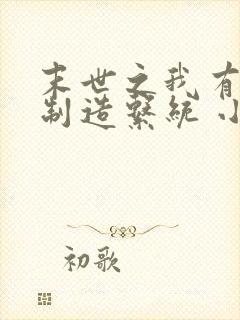 末世之我有
制造系统小
初歌